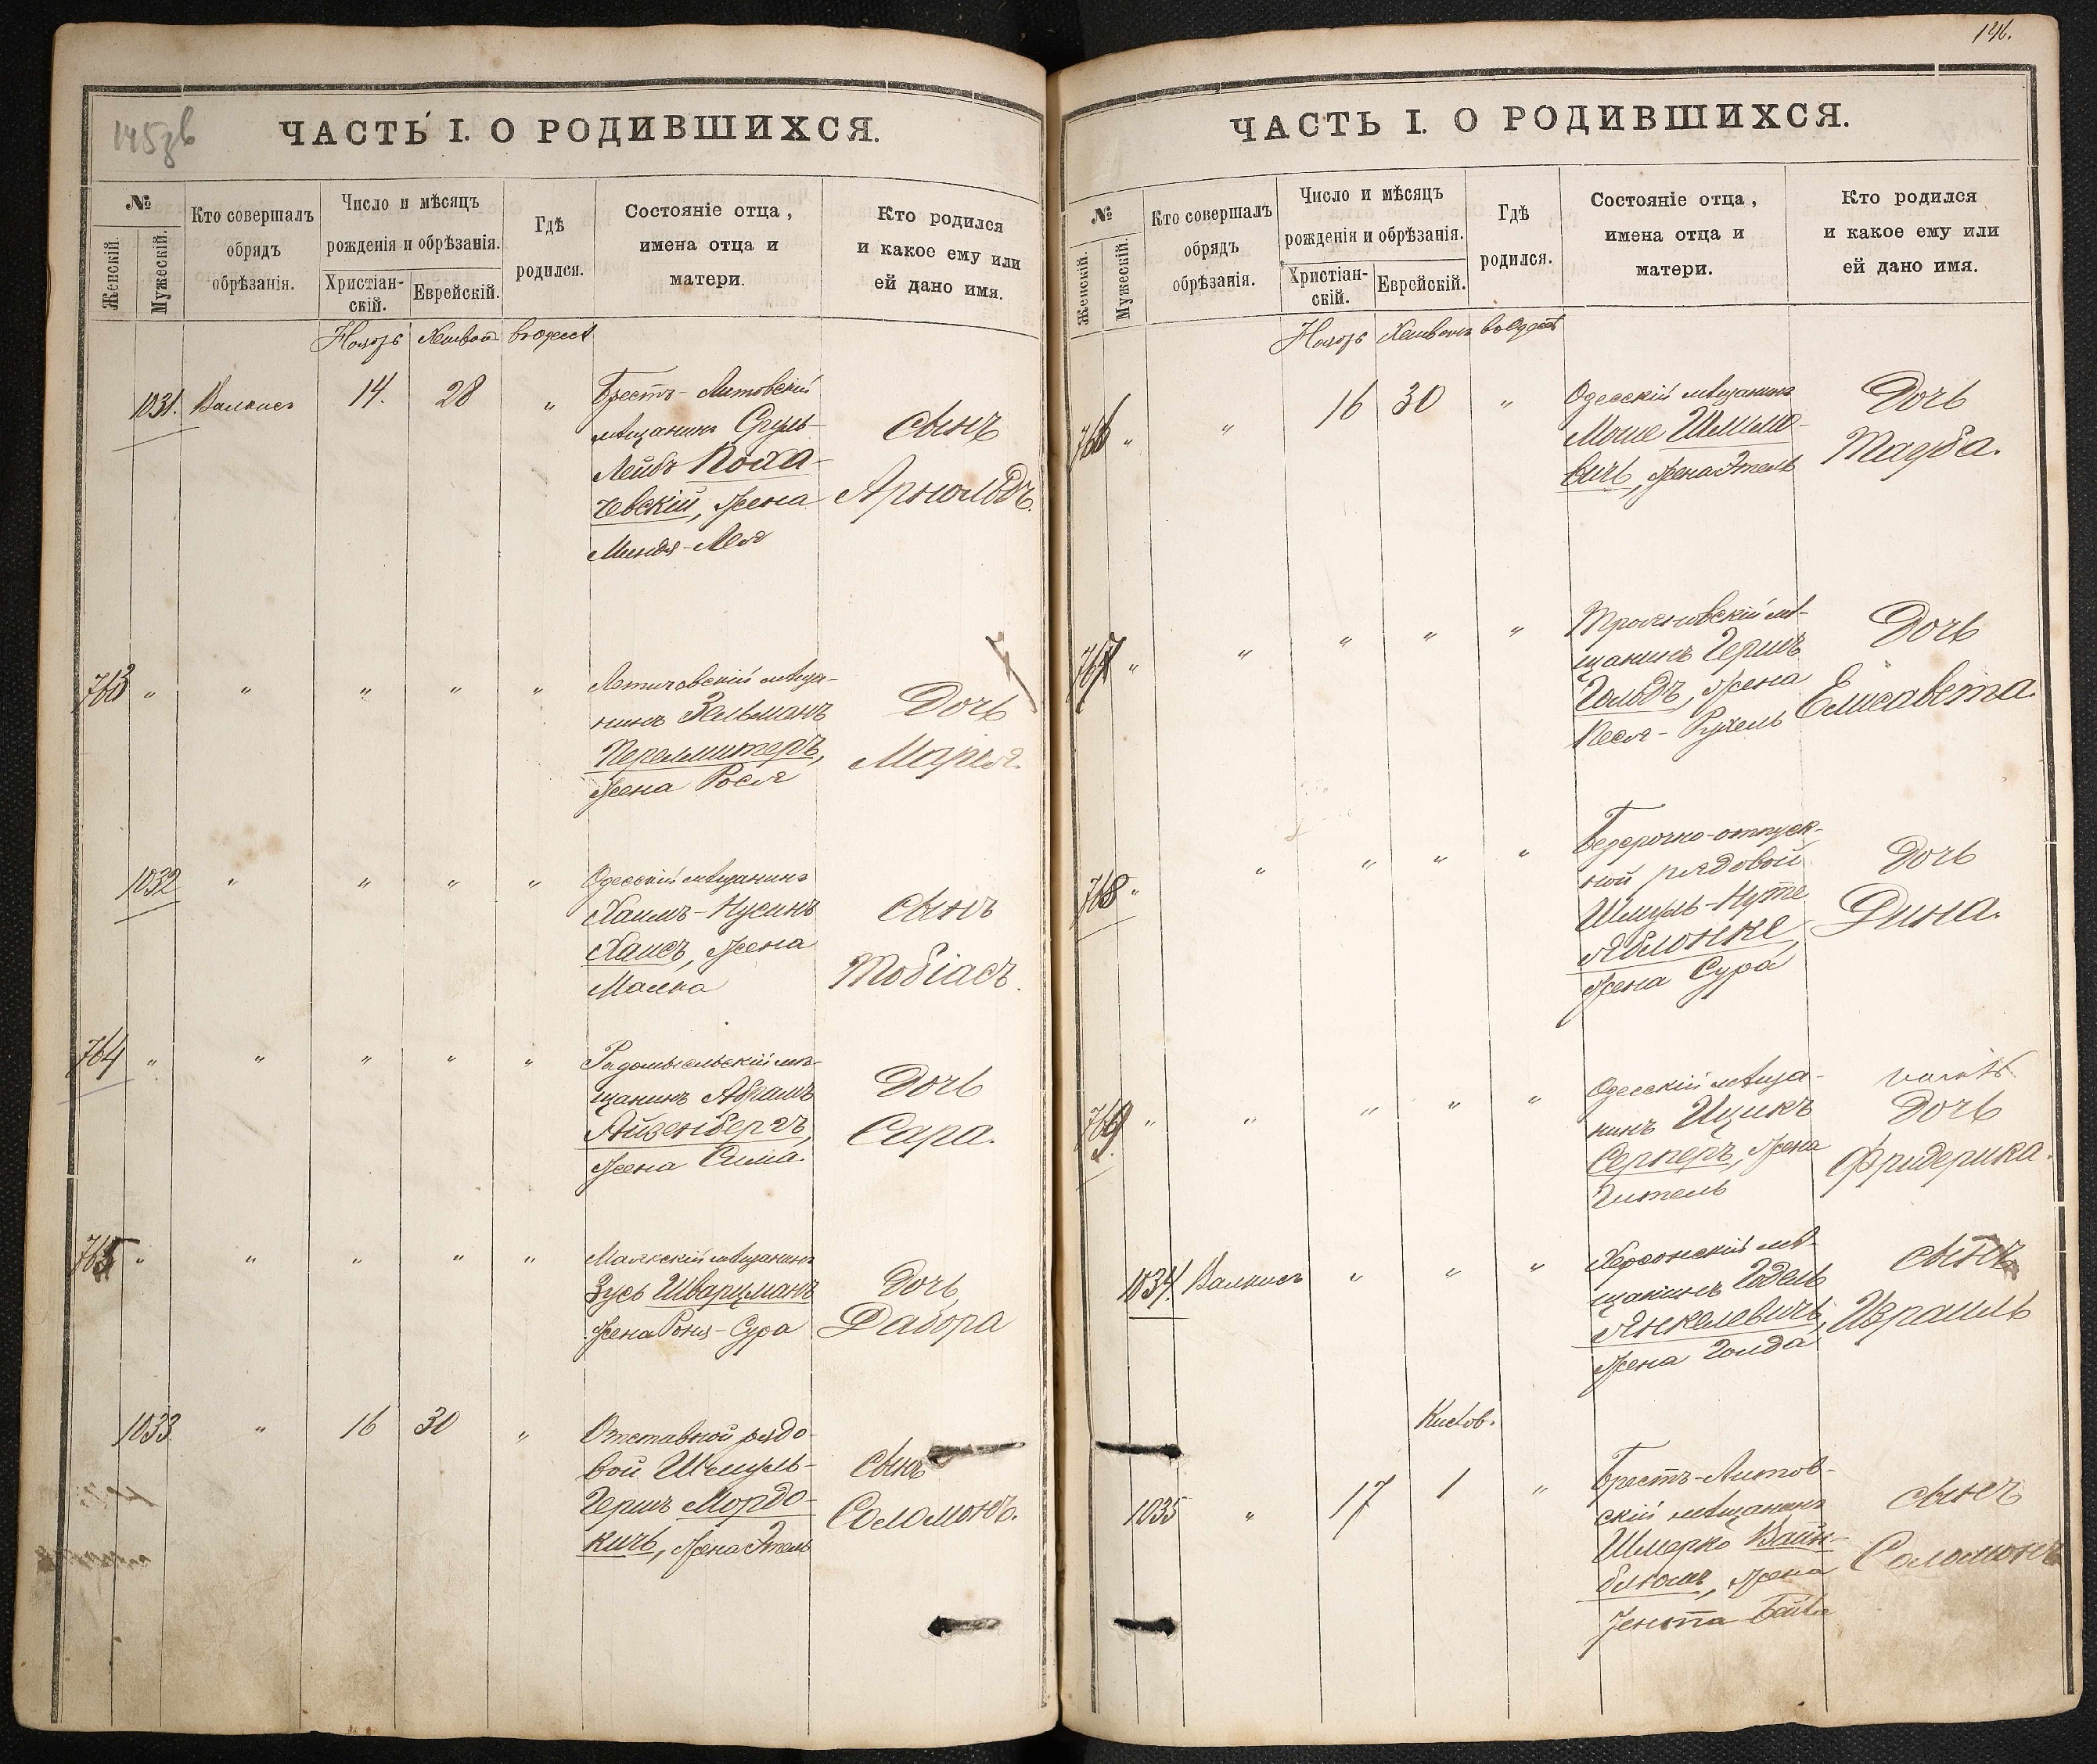 145зв
ЧАСТЬ I. О РОДИВШИХСЯ.
№
Женскій.
Мужескій.
Кто совершалъ
обрядъ
обрѣзанія.
Число и мѣсяцъ
рожденія и обрѣзанія.
Христіан-
скій.
Еврейскій.
Гдѣ
родился.
Состояніе отца,
имена отца и
матери.
Кто родился
и какое ему или
ей дано имя.
Ноябрь Хешванъ въ Одессѣ
1031. Валкисъ 14. 28 "
Брестъ-Литовскій
мѣщанинъ Сруль-
Лейбъ Поха-
чевскій, жена
Миндя-Лея
сынъ
Арнольдъ.
763 " " " " "
Летичовскій мѣща-
нинъ Зельманъ
Перелмитеръ,
жена Рося
Дочь
Марья.
1032 " " " "
Одесскій мѣщанинъ
Хаимъ-Нусинъ
Хаисъ, жена
Малка
сынъ
Тобіасъ.
764 " " " " "
Радомысльскій мѣ-
щанинъ Абрамъ
Айзенбергъ,
жена Сима.
Дочь
Сара.
765 " " " " "
Маякскій мѣщанинъ
Зусь Шварцманъ
жена Роня-Сура
Дочь
Дабора
1033 " 16 30 "
Отставной рядо-
вой Шмуль-
Гершъ Мордо-
кичъ, жена Этель
сынъ
Соломонъ.
146.
ЧАСТЬ I. О РОДИВШИХСЯ.
№
Женскій.
Мужескій.
Кто совершалъ
обрядъ
обрѣзанія.
Число и мѣсяцъ
рожденія и обрѣзанія.
Христіан-
скій.
Еврейскій.
Гдѣ
родился.
Состояніе отца,
имена отца и
матери.
Кто родился
и какое ему или
ей дано имя.
Ноябрь Хешванъ въ Одессѣ
766 " " 16 30 "
Одесскій мѣщанинъ
Мошe Шлимо-
вичъ, жена Этель
Дочь
Тауба.
767 " " " " "
мѣ-
щанинъ Гершъ
Гольдъ, жена
Песя-Рухель
Дочь
Елисавета.
768 " " " " "
Безсрочно-отпуск-
ной рядовой
Шмуль-Нуте
Яблонке,
жена Сура
Дочь
Дина.
769 " " " " "
Одесскій мѣща-
нинъ Ицикъ
Серперъ, жена
Гитель
Дочь
Фридерика.
1034. Валкисъ " " "
Херсонскій мѣ-
щанинъ Годель
Янкелевичъ,
жена Голда
сынъ
Израиль
Кислов.
1035 " 17 1 "
Брестъ-Литов-
скій мѣщанинъ
Шмерко Вайн-
блюмъ, жена
Јента
сынъ
Соломонъ